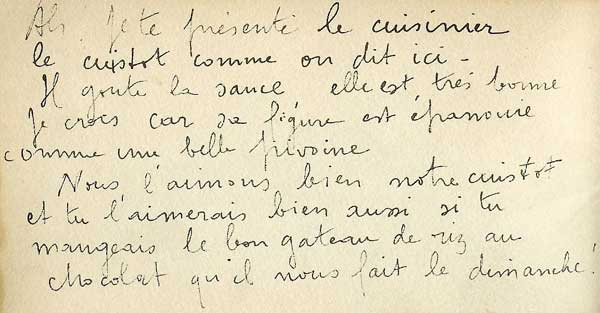 Ah! je te présente le cuisinier
le cuistot comme on dit ici -
Il goute la sauce elle est très bonne
je crois car sa figure est épanouie
comme une belle pivoine
Nous l'aimons bien notre cuistot
et tu l'aimerais bien aussi si tu
mangeais le bon gateau de riz au
chocolat qu'il nous fait le dimanche!